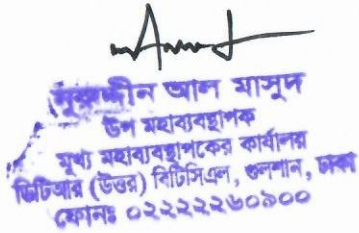 নুরুদ্দীন আল মাসুদ
উপ মহাব্যবস্থাপক
মুখ্য মহাব্যবস্থাপকের কার্যালয়
ডিটিআর (উত্তর) বিটিসিএল, গুলশান, ঢাকা
ফোনঃ ০২২২২২৬০৯০০